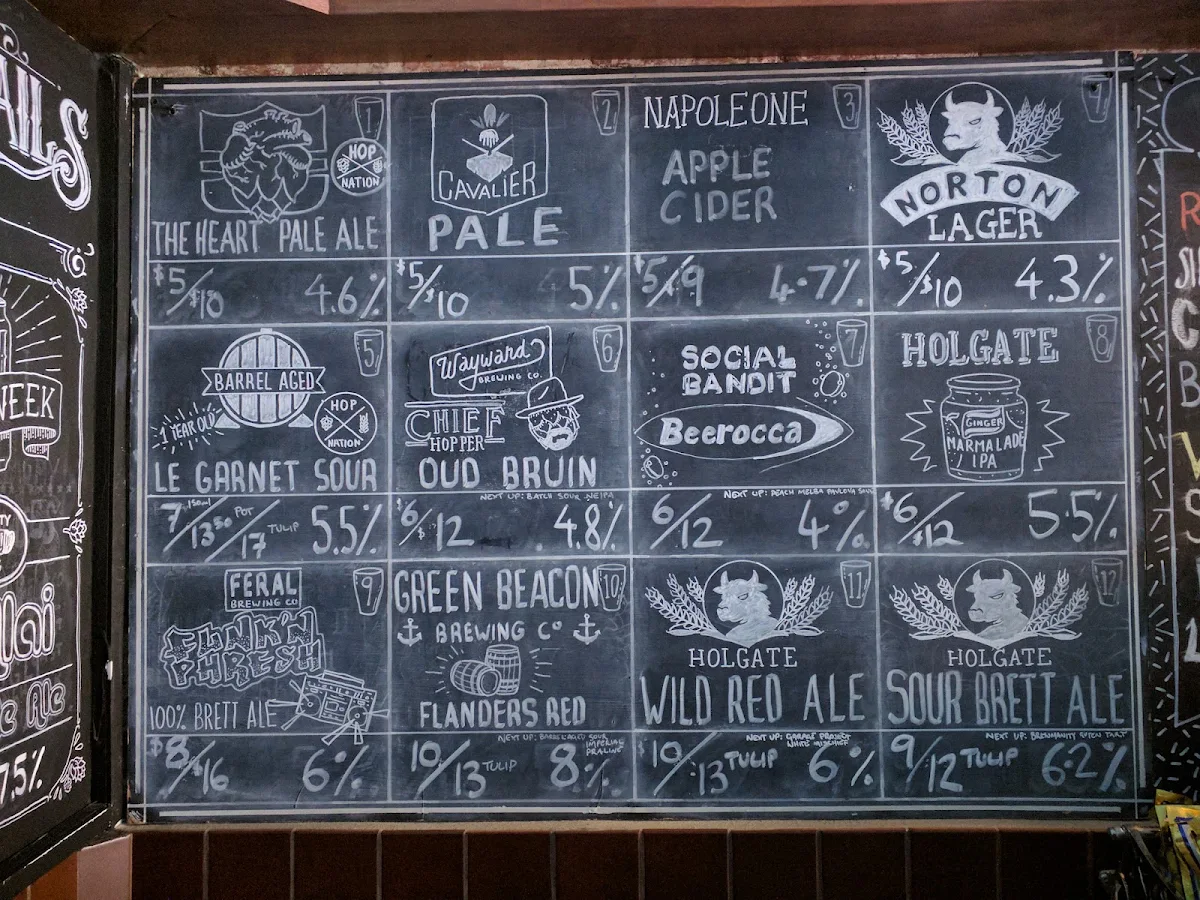 AILS
WEEK
7.5%
1
HOP
NATION
THE HEART PALE ALE
$5/$10 4.6%
2
CAVALIER
PALE
$5/$10 5%
3
NAPOLEONE
APPLE
CIDER
$5/$9 4.7%
4
NORTON
LAGER
$5/$10 4.3%
5
BARREL AGED
1 YEAR OLD
HOP
NATION
LE GARNET SOUR
7 150ml/13.50 POT/17 TULIP 5.5%
6
Wayward
BREWING CO.
CHIEF
HOPPER
OUD BRUIN
NEXT UP: BATCH SOUR NEIPA
$6/$12 4.8%
7
SOCIAL
BANDIT
Beerocca
NEXT UP: PEACH MELBA PAVLOVA SOUR
6/12 4%
8
HOLGATE
GINGER
MARMALADE
IPA
$6/$12 5.5%
9
FERAL
BREWING CO
FUNK'N
PHRESH
100% BRETT ALE
$8/$16 6%
10
GREEN BEACON
BREWING Cº
FLANDERS RED
NEXT UP: BARREL AGED SOUR
IMPERIAL
PRALINE
10/13 TULIP 8%
11
HOLGATE
WILD RED ALE
NEXT UP: GARAGE PROJECT
WHITE MISCHIEF
$10/$13 TULIP 6%
12
HOLGATE
SOUR BRETT ALE
NEXT UP:
9/12 TULIP 6.2%